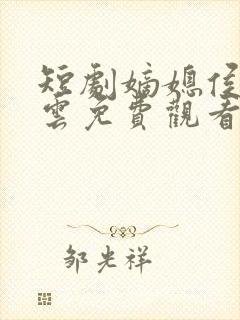 短劇嫡媳侯
雲免費觀看
邹光祥